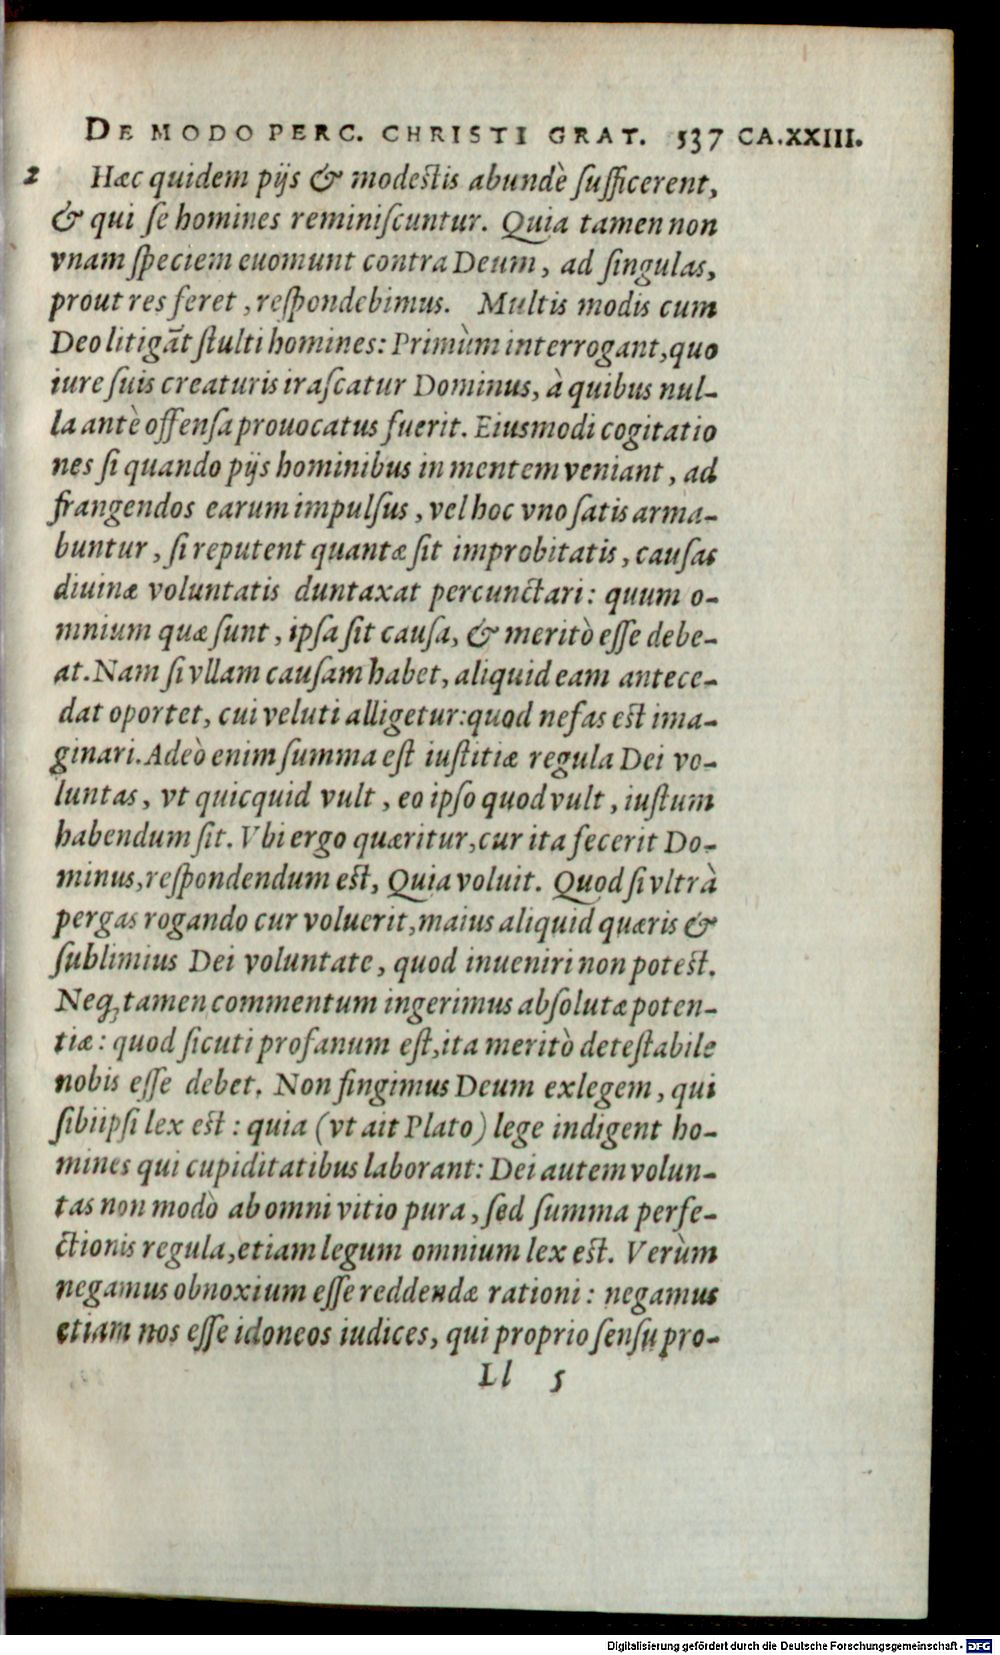 DE MODO PERC. CHRISTI GRAT. 537 CA.XXIII.
2 Hæc quidem pijs & modestis abundè sufficerent,
& qui se homines reminiscuntur. Quia tamen non
vnam speciem euomunt contra Deum, ad singulas,
prout res feret, respondebimus. Multis modis cum
Deo litigāt stulti homines: Primùm interrogant, quo
iure suis creaturis irascatur Dominus, à quibus nul-
la antè offensa prouocatus fuerit. Eiusmodi cogitatio
nes si quando pijs hominibus in mentem veniant, ad
frangendos earum impulsus, vel hoc vno satis arma-
buntur, si reputent quantæ sit improbitatis, causas
diuinæ voluntatis duntaxat percunctari: quum o-
mnium quæ sunt, ipsa sit causa, & meritò esse debe-
at. Nam si vllam causam habet, aliquid eam antece-
dat oportet, cui veluti alligetur: quod nefas est ima-
ginari. Adeò enim summa est iustitiæ regula Dei vo-
luntas, vt quicquid vult, eo ipso quod vult, iustum
habendum sit. Vbi ergo quæritur, cur ita fecerit Do-
minus, respondendum est, Quia voluit. Quod si vltrà
pergas rogando cur voluerit, maius aliquid quæris &
sublimius Dei voluntate, quod inueniri non potest.
Neq; tamen commentum ingerimus absolutæ poten-
tiæ: quod sicuti profanum est, ita meritò detestabile
nobis esse debet. Non fingimus Deum exlegem, qui
sibiipsi lex est: quia (vt ait Plato) lege indigent ho-
mines qui cupiditatibus laborant: Dei autem volun-
tas non modò ab omni vitio pura, sed summa perfe-
ctionis regula, etiam legum omnium lex est. Verùm
negamus obnoxium esse reddendæ rationi: negamus
etiam nos esse idoneos iudices, qui proprio sensu pro-
Ll 5
Digitalisierung gefördert durch die Deutsche Forschungsgemeinschaft - DFG